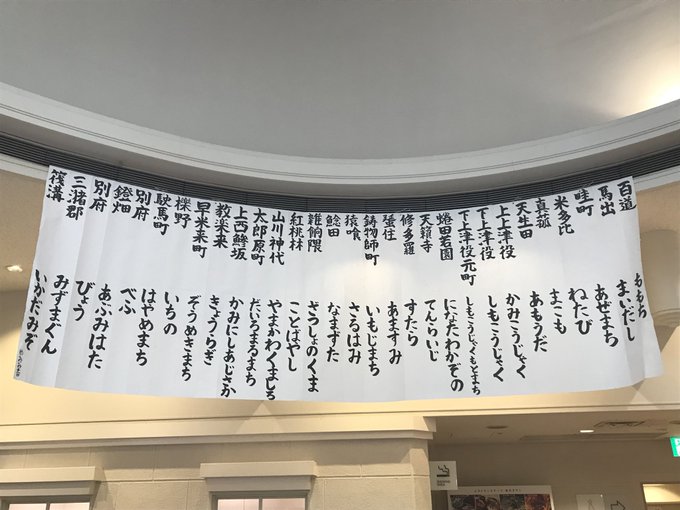 百道 ももち
馬出 まいだし
畦町 あぜまち
米多比 ねたび
真菰 まこも
天生田 あもうだ
上上津役 かみこうじゃく
下上津役 しもこうじゃく
下上津役元町 しもこうじゃくもとまち
蜷田若園 になたわかぞの
天籟寺 てんらいじ
修多羅 すたら
蜑住 あますみ
鋳物師町 いもじまち
猿喰 さるはみ
鯰田 なまずた
雑餉隈 ざっしょのくま
紅桃林 ことばやし
山川神代 やまかわくましろ
太郎原町 だいろまるまち
上西鰺坂 かみにしあじさか
教楽来 きょうらぎ
早米来町 ぞうめきまち
櫟野 いちの
駛馬町 はやめまち
別府 べふ
鐙畑 あぶみはた
別府 びょう
三潴郡 みずまぐん
溝 いかだみぞ